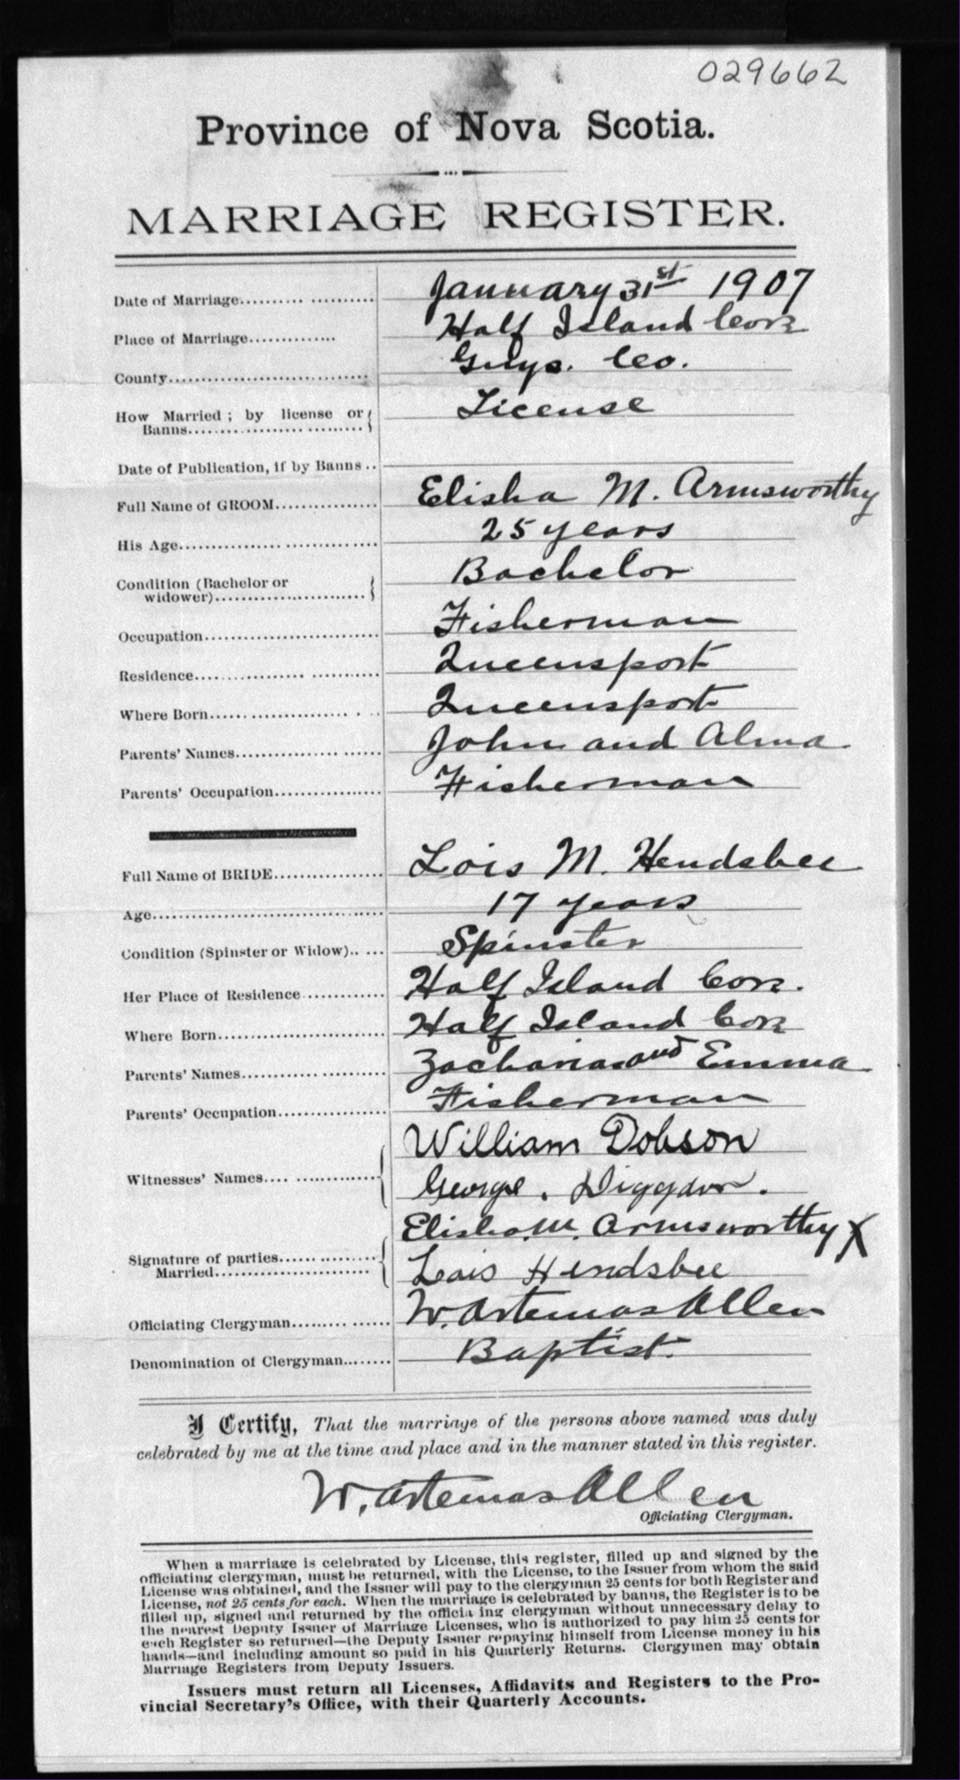 029662
Province of Nova Scotia.
MARRIAGE REGISTER.
Date of Marriage.......... .......... January 31st 1907
Place of Marriage............. Half Island Cove
County................................. Guys. Co.
How Married ; by license or License
Banns.................................
Date of Publication, if by Banns ..
Full Name of GROOM............... Elisha M. Armsworthy
His Age................................. 25 years
Condition (Bachelor or Bachelor
widower).........................
Occupation............................. Fisherman
Residence............................... Queensport
Where Born............................ Queensport
Parents' Names....................... John and Alma
Parents' Occupation................. Fisherman
Full Name of BRIDE................. Lois M. Hendsbee
Age....................................... 17 years
Condition (Spinster or Widow)..... Spinster
Her Place of Residence............. Half Island Cove.
Where Born............................ Half Island Cove
Parents' Names....................... Zacharias and Emma
Parents' Occupation................. Fisherman
Witnesses' Names.... ............... William Dobson
George. Diggdon.
Signature of parties................. Elisha. M. Armsworthy X
Married.............................. Lois Hendsbee
Officiating Clergyman............... W. Artemas Allen
Denomination of Clergyman........ Baptist.
I Certify, That the marriage of the persons above named was duly
celebrated by me at the time and place and in the manner stated in this register.
W. Artemas Allen
Officiating Clergyman.
When a marriage is celebrated by License, this register, filled up and signed by the
officiating clergyman, must be returned, with the License, to the Issuer from whom the said
License was obtained, and the Issuer will pay to the clergyman 25 cents for both Register and
License, not 25 cents for each. When the marriage is celebrated by banns, the Register is to be
filled up, signed and returned by the officia ing clergyman without unnecessary delay to
the nearest Deputy Issuer of Marriage Licenses, who is authorized to pay him 25 cents for
each Register so returned—the Deputy Issuer repaying himself from License money in his
hands—and including amount so paid in his Quarterly Returns. Clergymen may obtain
Marriage Registers from Deputy Issuers.
Issuers must return all Licenses, Affidavits and Registers to the Pro-
vincial Secretary's Office, with their Quarterly Accounts.